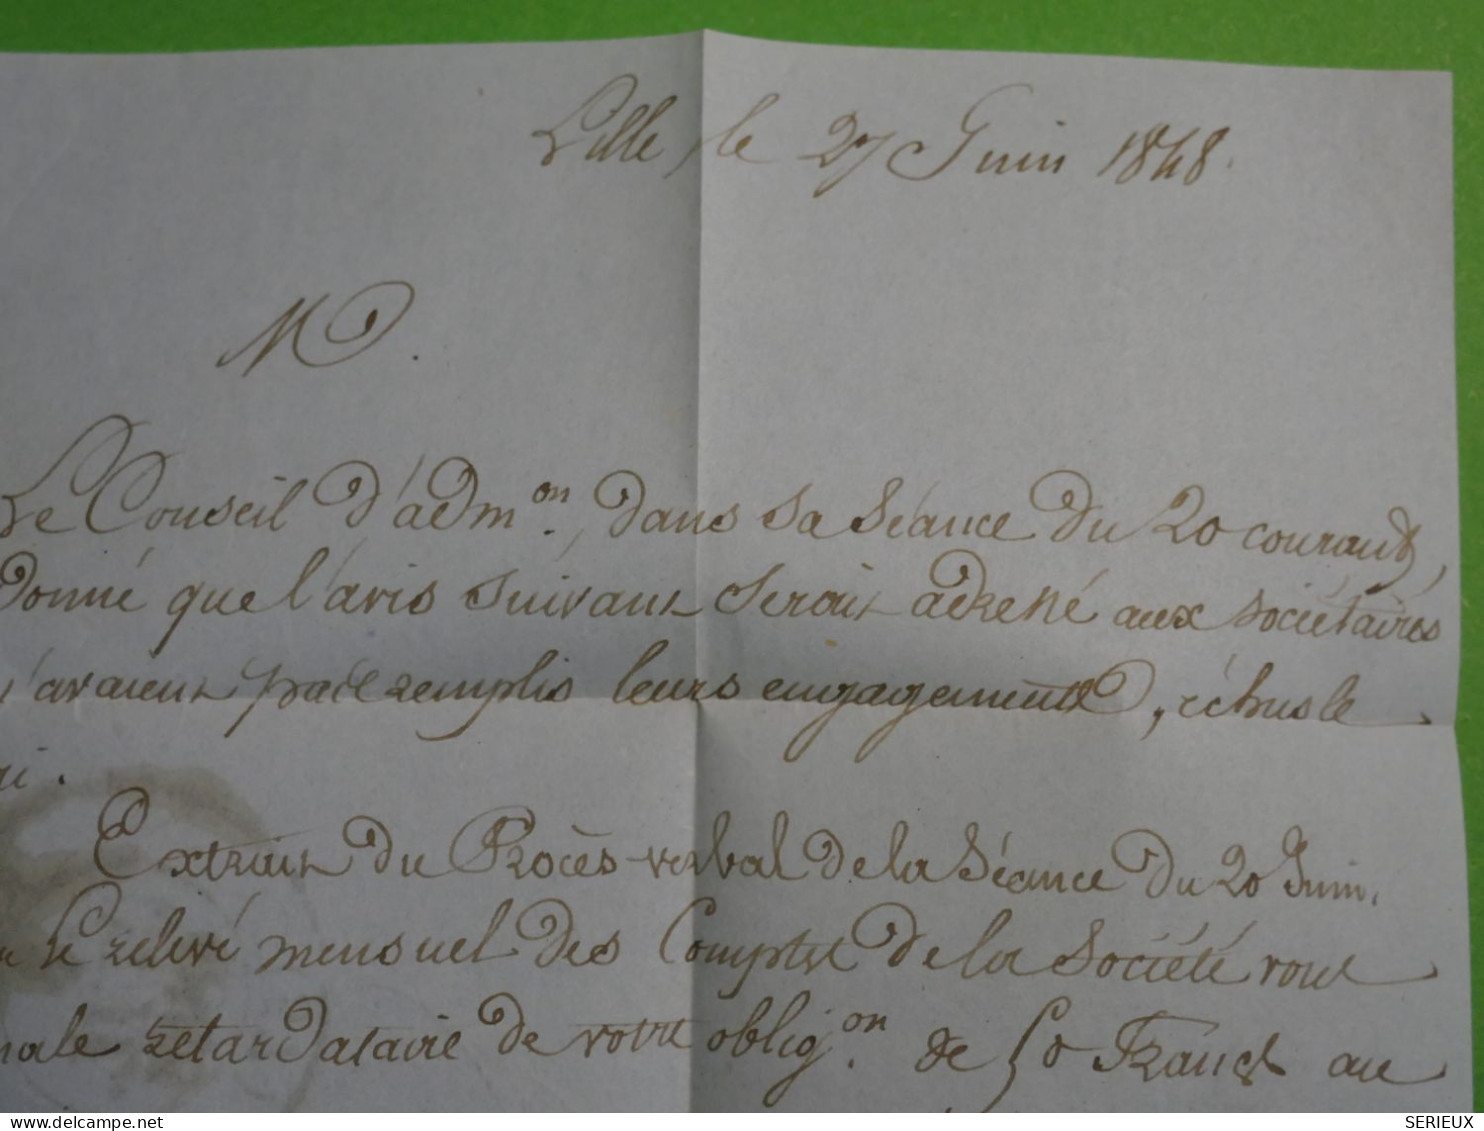 Lille, le 27 Juin 1848.
M.
Le Conseil d'adm.on, dans sa séance du 20 courant,
donné que l'avis suivant serait adressé aux sociétaires
n'avaient pas remplis leurs engagements, échus le
Extrait du Procès-verbal de la Séance du 20 Juin.
le relevé mensuel des Comptes de la Société vous
nale retardataire de votre oblig.on de 50 Francs au
SERIEUX